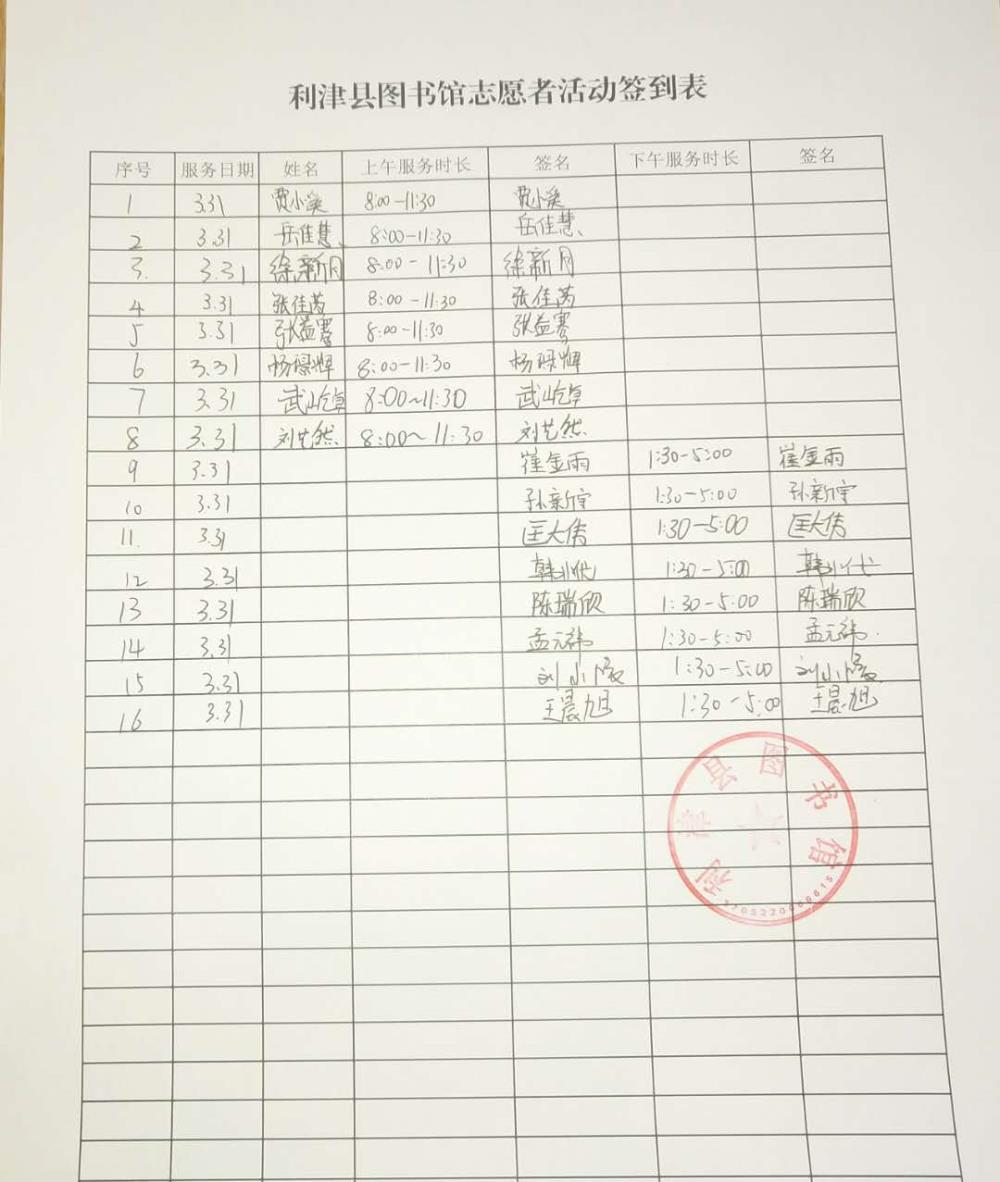 利津县图书馆志愿者活动签到表
序号 服务日期 姓名 上午服务时长 签名 下午服务时长 签名
1 3.31 贾小溪 8:00-11:30 贾小溪
2 3.31 岳佳慧 8:00-11:30 岳佳慧
3. 3.31 徐新月 8:00-11:30 徐新月
4 3.31 张佳芮 8:00-11:30 张佳芮
5 3.31 张益骞 8:00-11:30 张益骞
6 3.31 杨 8:00-11:30 杨
7 3.31 武屹卓 8:00~11:30 武屹卓
8 3.31 刘艺然 8:00~11:30 刘艺然
9 3.31 崔金雨 1:30-5:00 崔金雨
10 3.31 孙新宇 1:30-5:00 孙新宇
11. 3.31 匡大 1:30-5:00 匡大
12 3.31 韩 1:30-5:00 韩
13 3.31 陈瑞欣 1:30-5:00 陈瑞欣
14 3.31 孟元祎 1:30-5:00 孟元祎
15 3.31 刘小 1:30-5:00 刘小
16 3.31 王晨旭 1:30-5:00 王晨旭
利津县图书馆